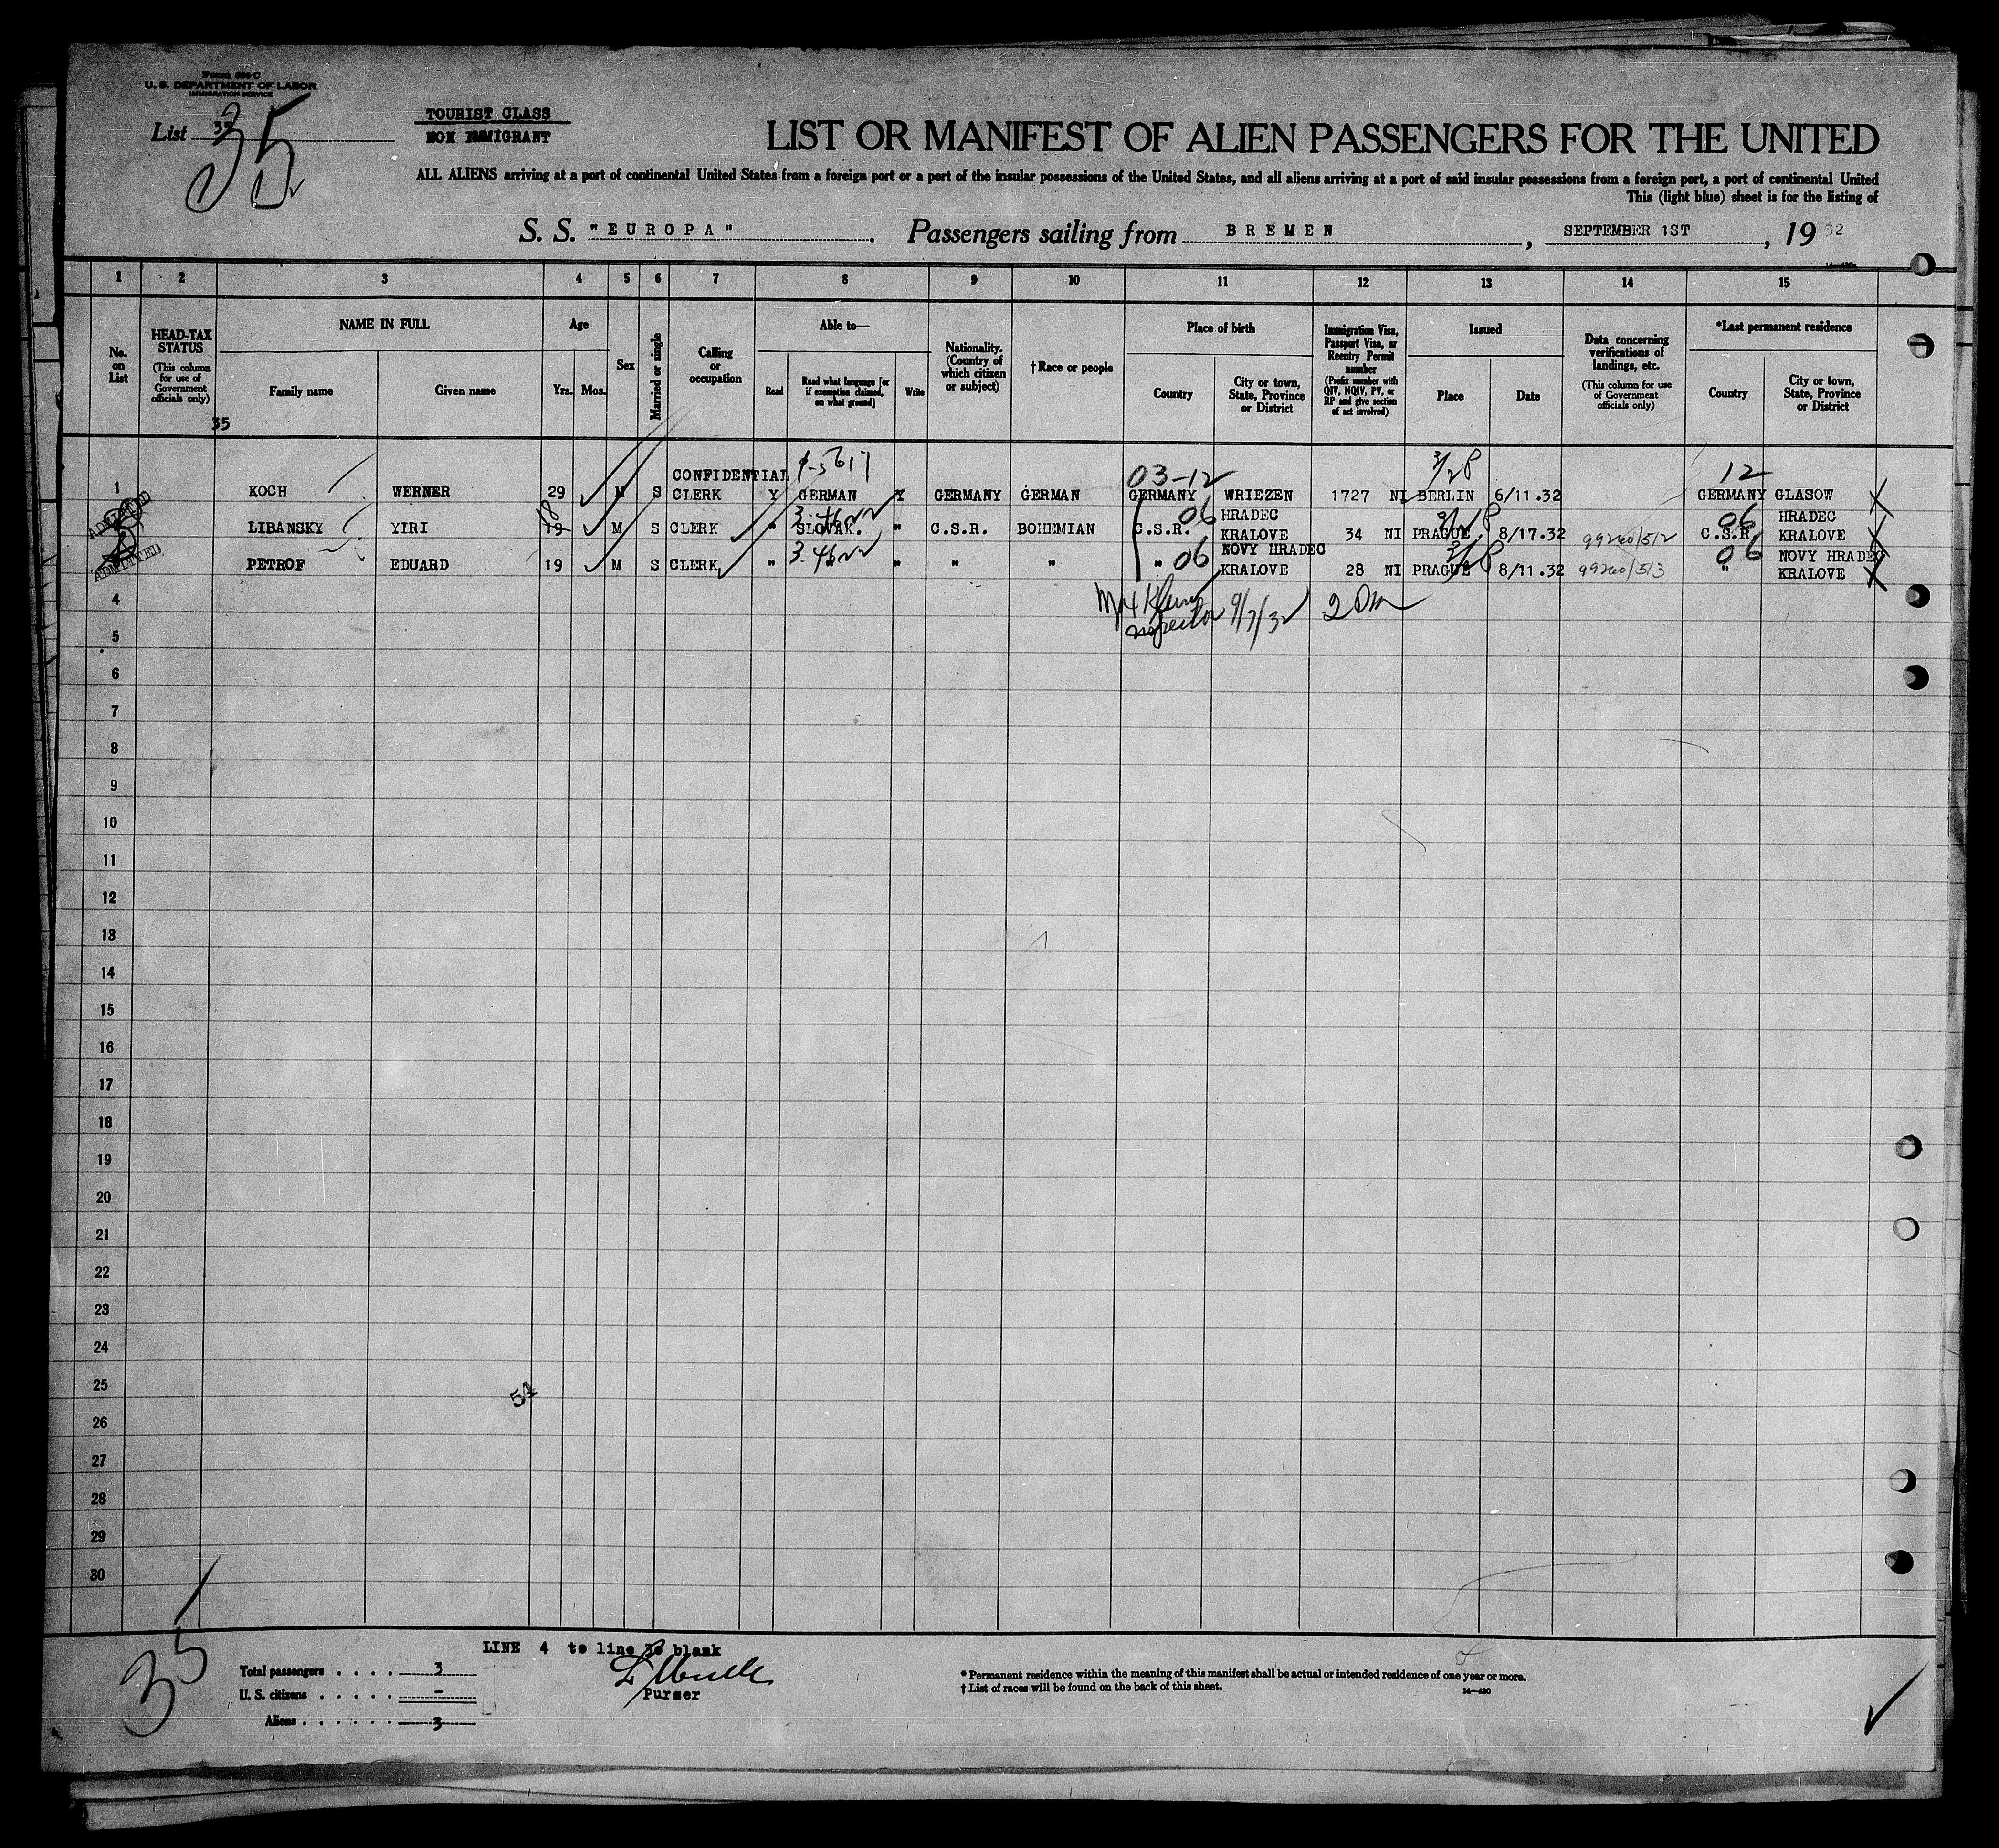 Form 500 C
U. S. DEPARTMENT OF LABOR
IMMIGRATION SERVICE
List 35
35
TOURIST CLASS
NON IMMIGRANT
LIST OR MANIFEST OF ALIEN PASSENGERS FOR THE UNITED
ALL ALIENS arriving at a port of continental United States from a foreign port or a port of the insular possessions of the United States, and all aliens arriving at a port of said insular possessions from a foreign port, a port of continental United
This (light blue) sheet is for the listing of
S. S. "EUROPA". Passengers sailing from BREMEN, SEPTEMBER 1ST, 1932
1 2 3 4 5 6 7 8 9 10 11 12 13 14 15
No. on List
HEAD-TAX STATUS (This column for use of Government officials only)
NAME IN FULL
Family name Given name
Age
Yrs. Mos.
Sex
Married or single
Calling or occupation
Able to—
Read Read what language [or if exemption claimed, on what ground] Write
Nationality. (Country of which citizen or subject)
†Race or people
Place of birth
Country City or town, State, Province or District
Immigration Visa, Passport Visa, or Reentry Permit number (Prefix number with QIV, NQIV, PV, or RP and give section of act involved)
Issued
Place Date
Data concerning verifications of landings, etc. (This column for use of Government officials only)
*Last permanent residence
Country City or town, State, Province or District
35
CONFIDENTIAL 03-12 3/28 12
1 KOCH WERNER 29 M S CLERK Y GERMAN Y GERMANY GERMAN GERMANY WRIEZEN 1727 NI BERLIN 6/11.32 GERMANY GLASOW
ADMITTED
18 06 HRADEC 06 HRADEC
LIBANSKY YIRI 19 M S CLERK " SLOVAK. " C.S.R. BOHEMIAN C.S.R. KRALOVE 34 NI PRAGUE 8/17.32 99260/512 C.S.R. KRALOVE
ADMITTED
06 NOVY HRADEC 06 NOVY HRADEC
PETROF EDUARD 19 M S CLERK " " " " " " KRALOVE 28 NI PRAGUE 8/11.32 99260/513 " KRALOVE
Inspector 9/7/32
4
5
6
7
8
9
10
11
12
13
14
15
16
17
18
19
20
21
22
23
24
25
54
26
27
28
29
30
35
LINE 4 to line 30 blank
Purser
Total passengers . . . . 3
U. S. citizens . . . . . -
Aliens . . . . . . 3
* Permanent residence within the meaning of this manifest shall be actual or intended residence of one year or more.
† List of races will be found on the back of this sheet.
14—430